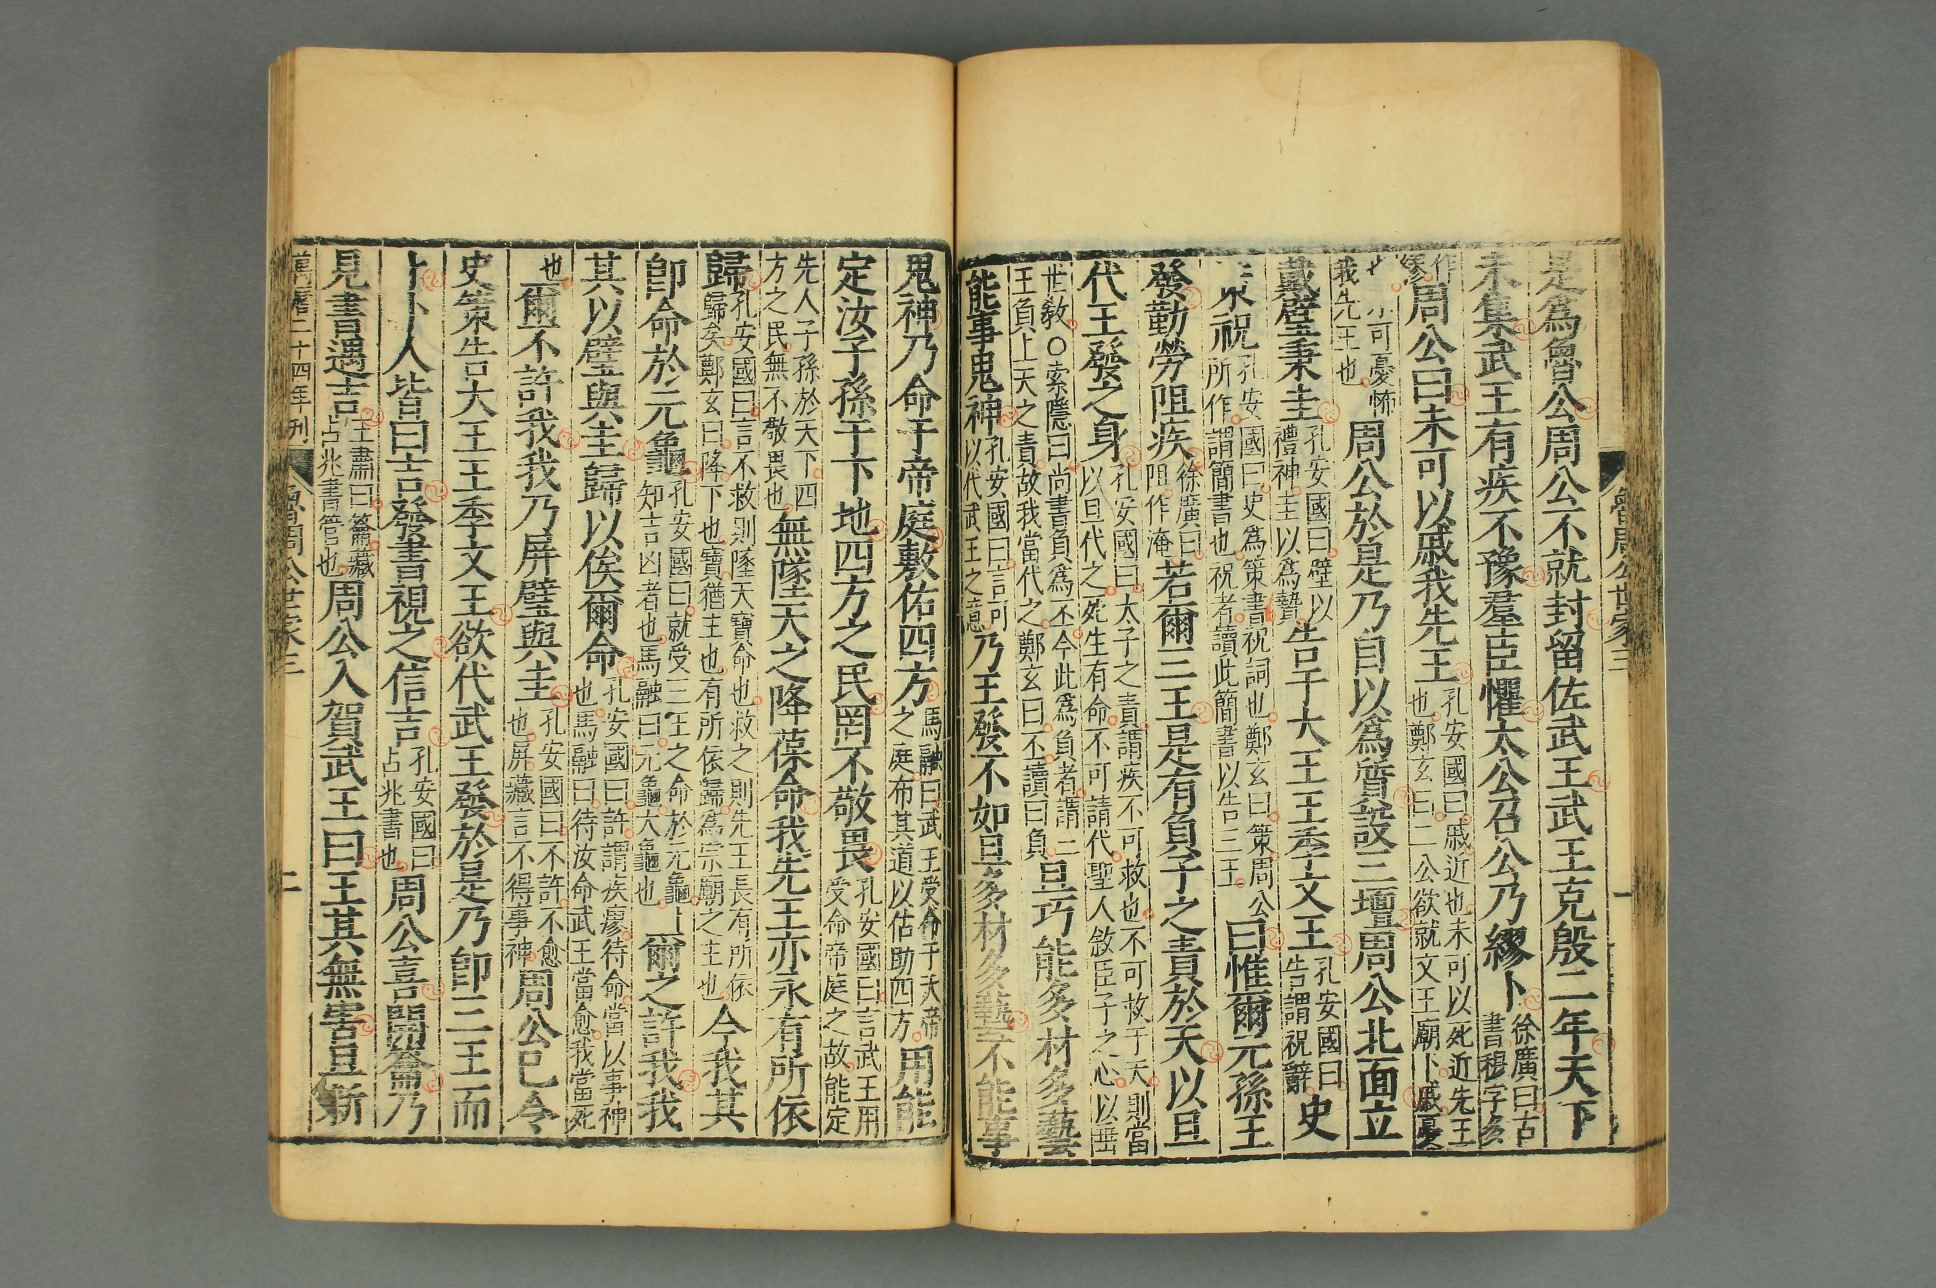 魯周公世家三 一
是爲魯公周公不就封留佐武王武王克殷二年天下
未集武王有疾不豫羣臣懼太公召公乃繆卜徐廣曰古書穆字多
作繆周公曰未可以戚我先王孔安國曰戚近也未可以死近先王也鄭玄曰二公欲就文王廟卜戚憂
也可憂怖我先王也周公於是乃自以爲質設三壇周公北面立
戴璧秉圭孔安國曰璧以禮神圭以爲贄告于大王王季文王孔安國曰告謂祝辭史
策祝孔安國曰史爲策書祝詞也鄭玄曰策周公所作謂簡書也祝者讀此簡書以告三王曰惟爾元孫王
發勤勞阻疾徐廣曰阻作淹若爾三王是有負子之責於天以旦
代王發之身孔安國曰太子之責謂疾不可救也不可救于天則當以旦代之死生有命不可請代聖人敘臣子之心以垂
世敎○索隱曰尚書負爲丕今此爲負者謂三王負上天之責故我當代之鄭玄曰丕讀曰負旦巧能多材多藝
能事鬼神孔安國曰言可以代武王之意乃王發不如旦多材多藝不能事
鬼神乃命于帝庭敷佑四方馬融曰武王受命于天帝之庭布其道以佑助四方用能
定汝子孫于下地四方之民罔不敬畏孔安國曰言武王用受命帝庭之故能定
先人子孫於天下四方之民無不敬畏也無墜天之降葆命我先王亦永有所依
歸孔安國曰言不救則墜天寶命也救之則先王長有所依歸矣鄭玄曰降下也寶猶主也有所依歸爲宗廟之主也今我其
卽命於元龜孔安國曰就受三王之命於元龜知吉凶者也馬融曰元龜大龜也爾之許我我
其以璧與圭歸以俟爾命孔安國曰許謂疾瘳待命當以事神也馬融曰待汝命武王當愈我當死
也爾不許我我乃屏璧與圭孔安國曰不許不愈也屏藏言不得事神周公已令
史策告大王王季文王欲代武王發於是乃卽三王而
卜人皆曰吉發書視之信吉孔安國曰占兆書也周公喜開籥乃
見書遇吉王肅曰籥藏占兆書管也周公入賀武王曰王其無害旦新
萬曆二十四年刊 魯周公世家三 二